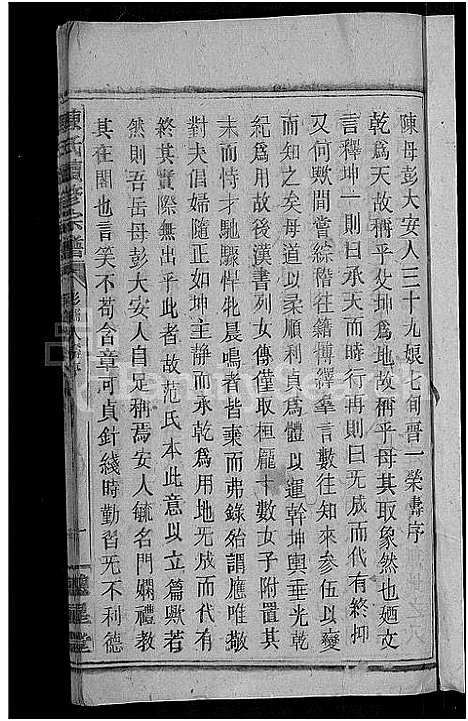 陳母彭大安人三十九娘七旬晋一榮壽序
乾爲天故稱乎父坤爲地故稱乎母其取象然也廼文
言釋坤一則曰承天而時行再則曰无成而代有終抑
又何歟間嘗綜稽往籍博繹羣言數往知來參伍以變
而知之矣母道以柔順利貞爲體以運幹坤輿垂光乾
紀爲用故後漢書列女傳僅取桓龐十數女子附置其
末而恃才馳驟悍牝晨鳴者皆棄而弗錄殆謂應唯敬
對夫倡婦隨正如坤主靜而承乾爲用地无成而代有
終其實際無出乎此者故范氏本此意以立篇歟若
然則吾岳母彭大安人自足稱焉安人毓名門嫻禮教
其在閨也言笑不苟含章可貞針綫時勤習无不利德
陳氏續修宗譜